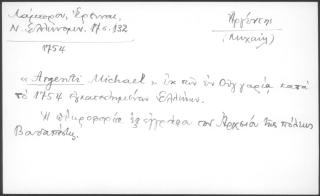 Λάμπρου, Ἔρευναι,
Ν. Ἑλληνομν. 17ς. 132
1754
Ἀργέντης
(Μιχαήλ)
« Argenti Michael » ἐκ τῶν ἐν Οὐγγαρίᾳ κατὰ
τὸ 1754 ἐγκατεστημένων Ἑλλήνων.
Ἡ πληροφορία ἐξ ἐγγράφου τοῦ Ἀρχείου τῆς πόλεως
Βουδαπέστης.